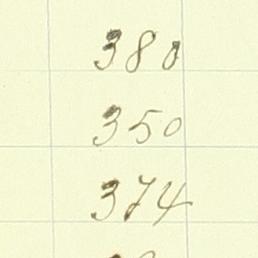 380
350
374